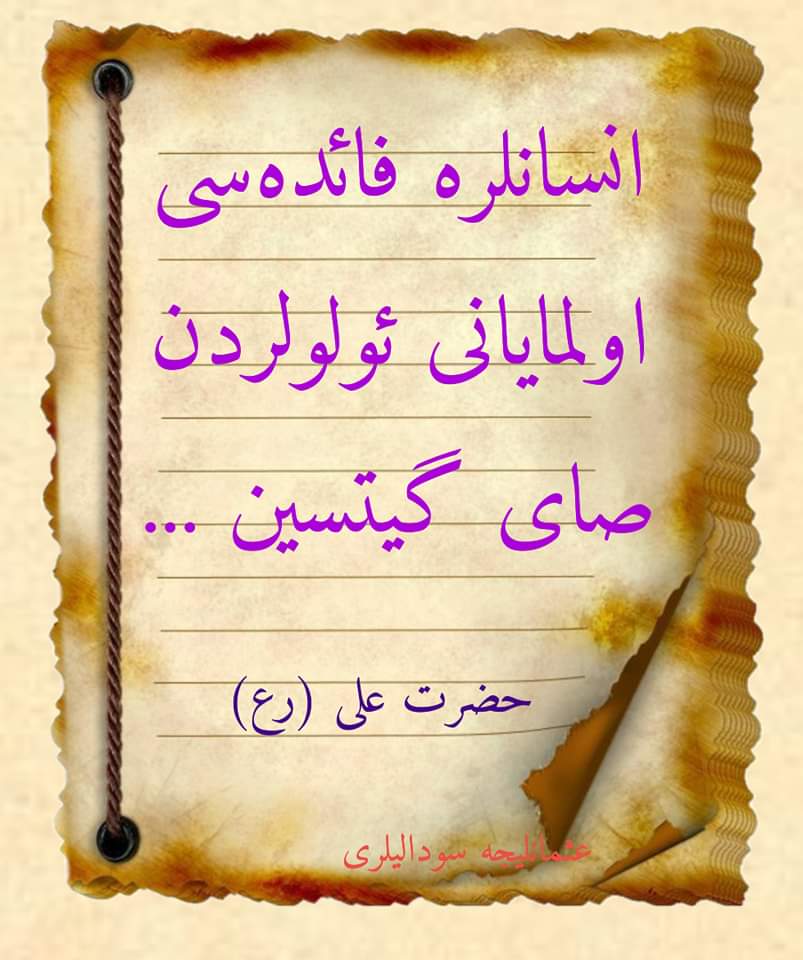 انسانلره فائده‌سی
اولمایانی ئولولردن
صای گیتسین ...
حضرت علی (رع)
عثمانلیجه سودالیلری